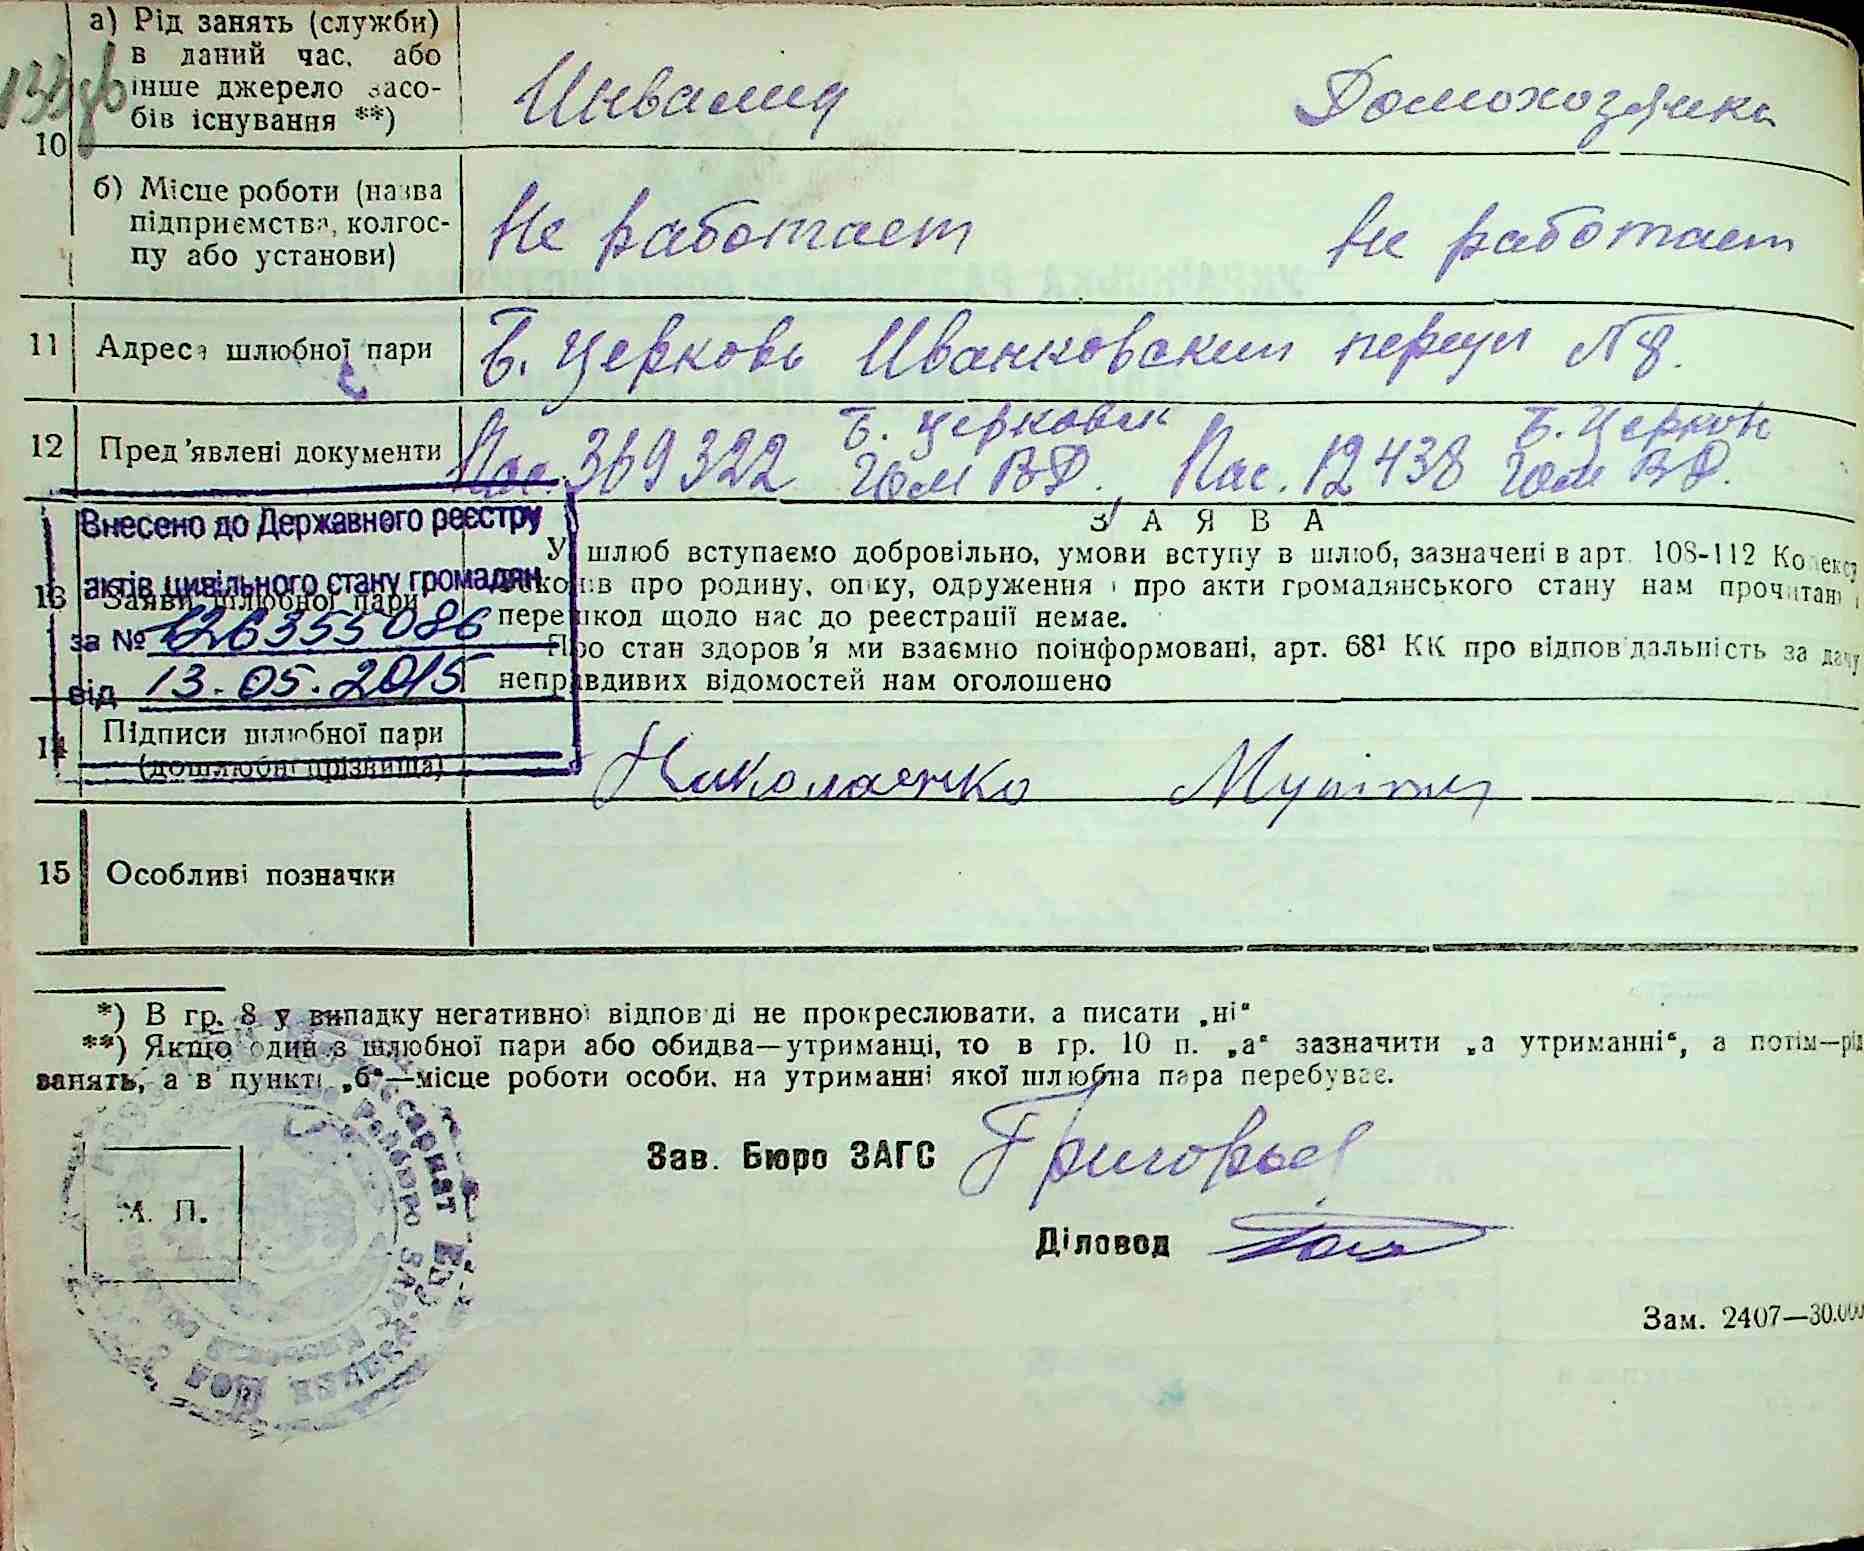 а) Рід занять (служби)
в даний час, або
інше джерело засо-
бів існування **)
10
Инвалид Домохозяйка
б) Місце роботи (назва
підприємства, колгос-
пу або установи)
Не работает Не работает
11 Адреса шлюбної пари Б. Церковь Иванковский переул №8.
12 Пред'явлені документи Пас. 369322 Б. Церковск ГОМ ВД., Пас. 12438 Б. Церков ГОМ ВД.
Внесено до Державного реєстру
актів цивільного стану громадян
за №
від 13.05.2015
13 Заяви шлюбної пари
ЗАЯВА
У шлюб вступаємо добровільно, умови вступу в шлюб, зазначені в арт. 108-112 Кодексу
законів про родину, опіку, одруження і про акти громадянського стану нам прочитані і
перешкод щодо нас до реєстрації немає.
Про стан здоров'я ми взаємно поінформовані, арт. 68¹ КК про відповідальність за дачу
неправдивих відомостей нам оголошено
14 Підписи шлюбної пари
(дошлюбні прізвища)
Николаенко
15 Особливі позначки
*) В гр. 8 у випадку негативної відповіді не прокреслювати, а писати „ні“
**) Якщо один з шлюбної пари або обидва—утриманці, то в гр. 10 п. „а“ зазначити „а утриманні“, а потім—рід
занять, а в пункті „б“—місце роботи особи, на утриманні якої шлюбна пара перебуває.
Зав. Бюро ЗАГС
Діловод
М. П.
Зам. 2407—30.000